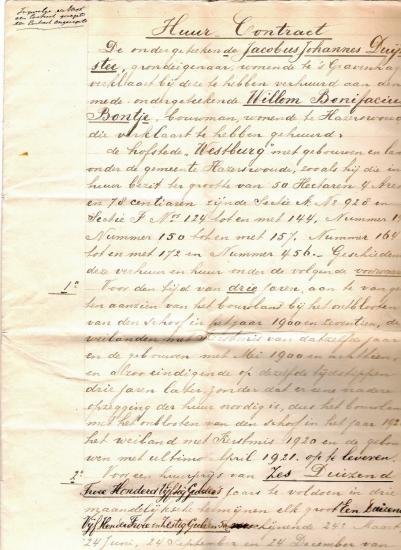 Huur Contract
De ondergeteekende Jacobus Johannes Duij
stee, grondeigenaar, wonende te 's Gravenhag
verklaart bij deze te hebben verhuurd aan den
mede-ondergeteekende Willem Bonifacius
Bontje, bouwman, wonende te Hazerswoud
die verklaart te hebben gehuurd,
de hofstede "Westburg" met gebouwen en lan
onder de gemeente Hazerswoude, zooals hij die in
huur bezit ter grootte van 50 Hectaren 4 Aren
en 78 centiaren zijnde Sectie N. No 928 en
Sectie F Nos 124 tot en met 144, Nummer 1
Nummer 150 tot en met 157, Nummer 164
tot en met 172 en Nummer 456. Geschieden
deze verhuur en huur onder de volgende voorwaar
1o Voor den tijd van drie jaren, aan te vang
ten aanzien van het bouwland bij het ontblooten
van den schoof in het jaar 1900 en zeventien, de
weilanden met Kerstmis van datzelfde jaar
en de gebouwen met Mei 1900 en achttien
en alzoo eindigende op dezelfde tijdstippen
drie jaren later, zonder dat er eene nadere
opzegging der huur noodig is, dus het bouwlan
met het ontblooten van den schoof in het jaar 192
het weiland met Kerstmis 1920 en de gebou
wen met ultimo April 1921 op te leveren.
2o Voor een huurprijs van Zes Duizend
Twee Honderd Vijftig Gulden 's jaars te voldoen in drie
maandelijksche termijnen elk groot Een Duizend
Vijf Honderd Twee en Zestig Gulden verschijnende 24 Maart
24 Juni, 24 September en 24 December van